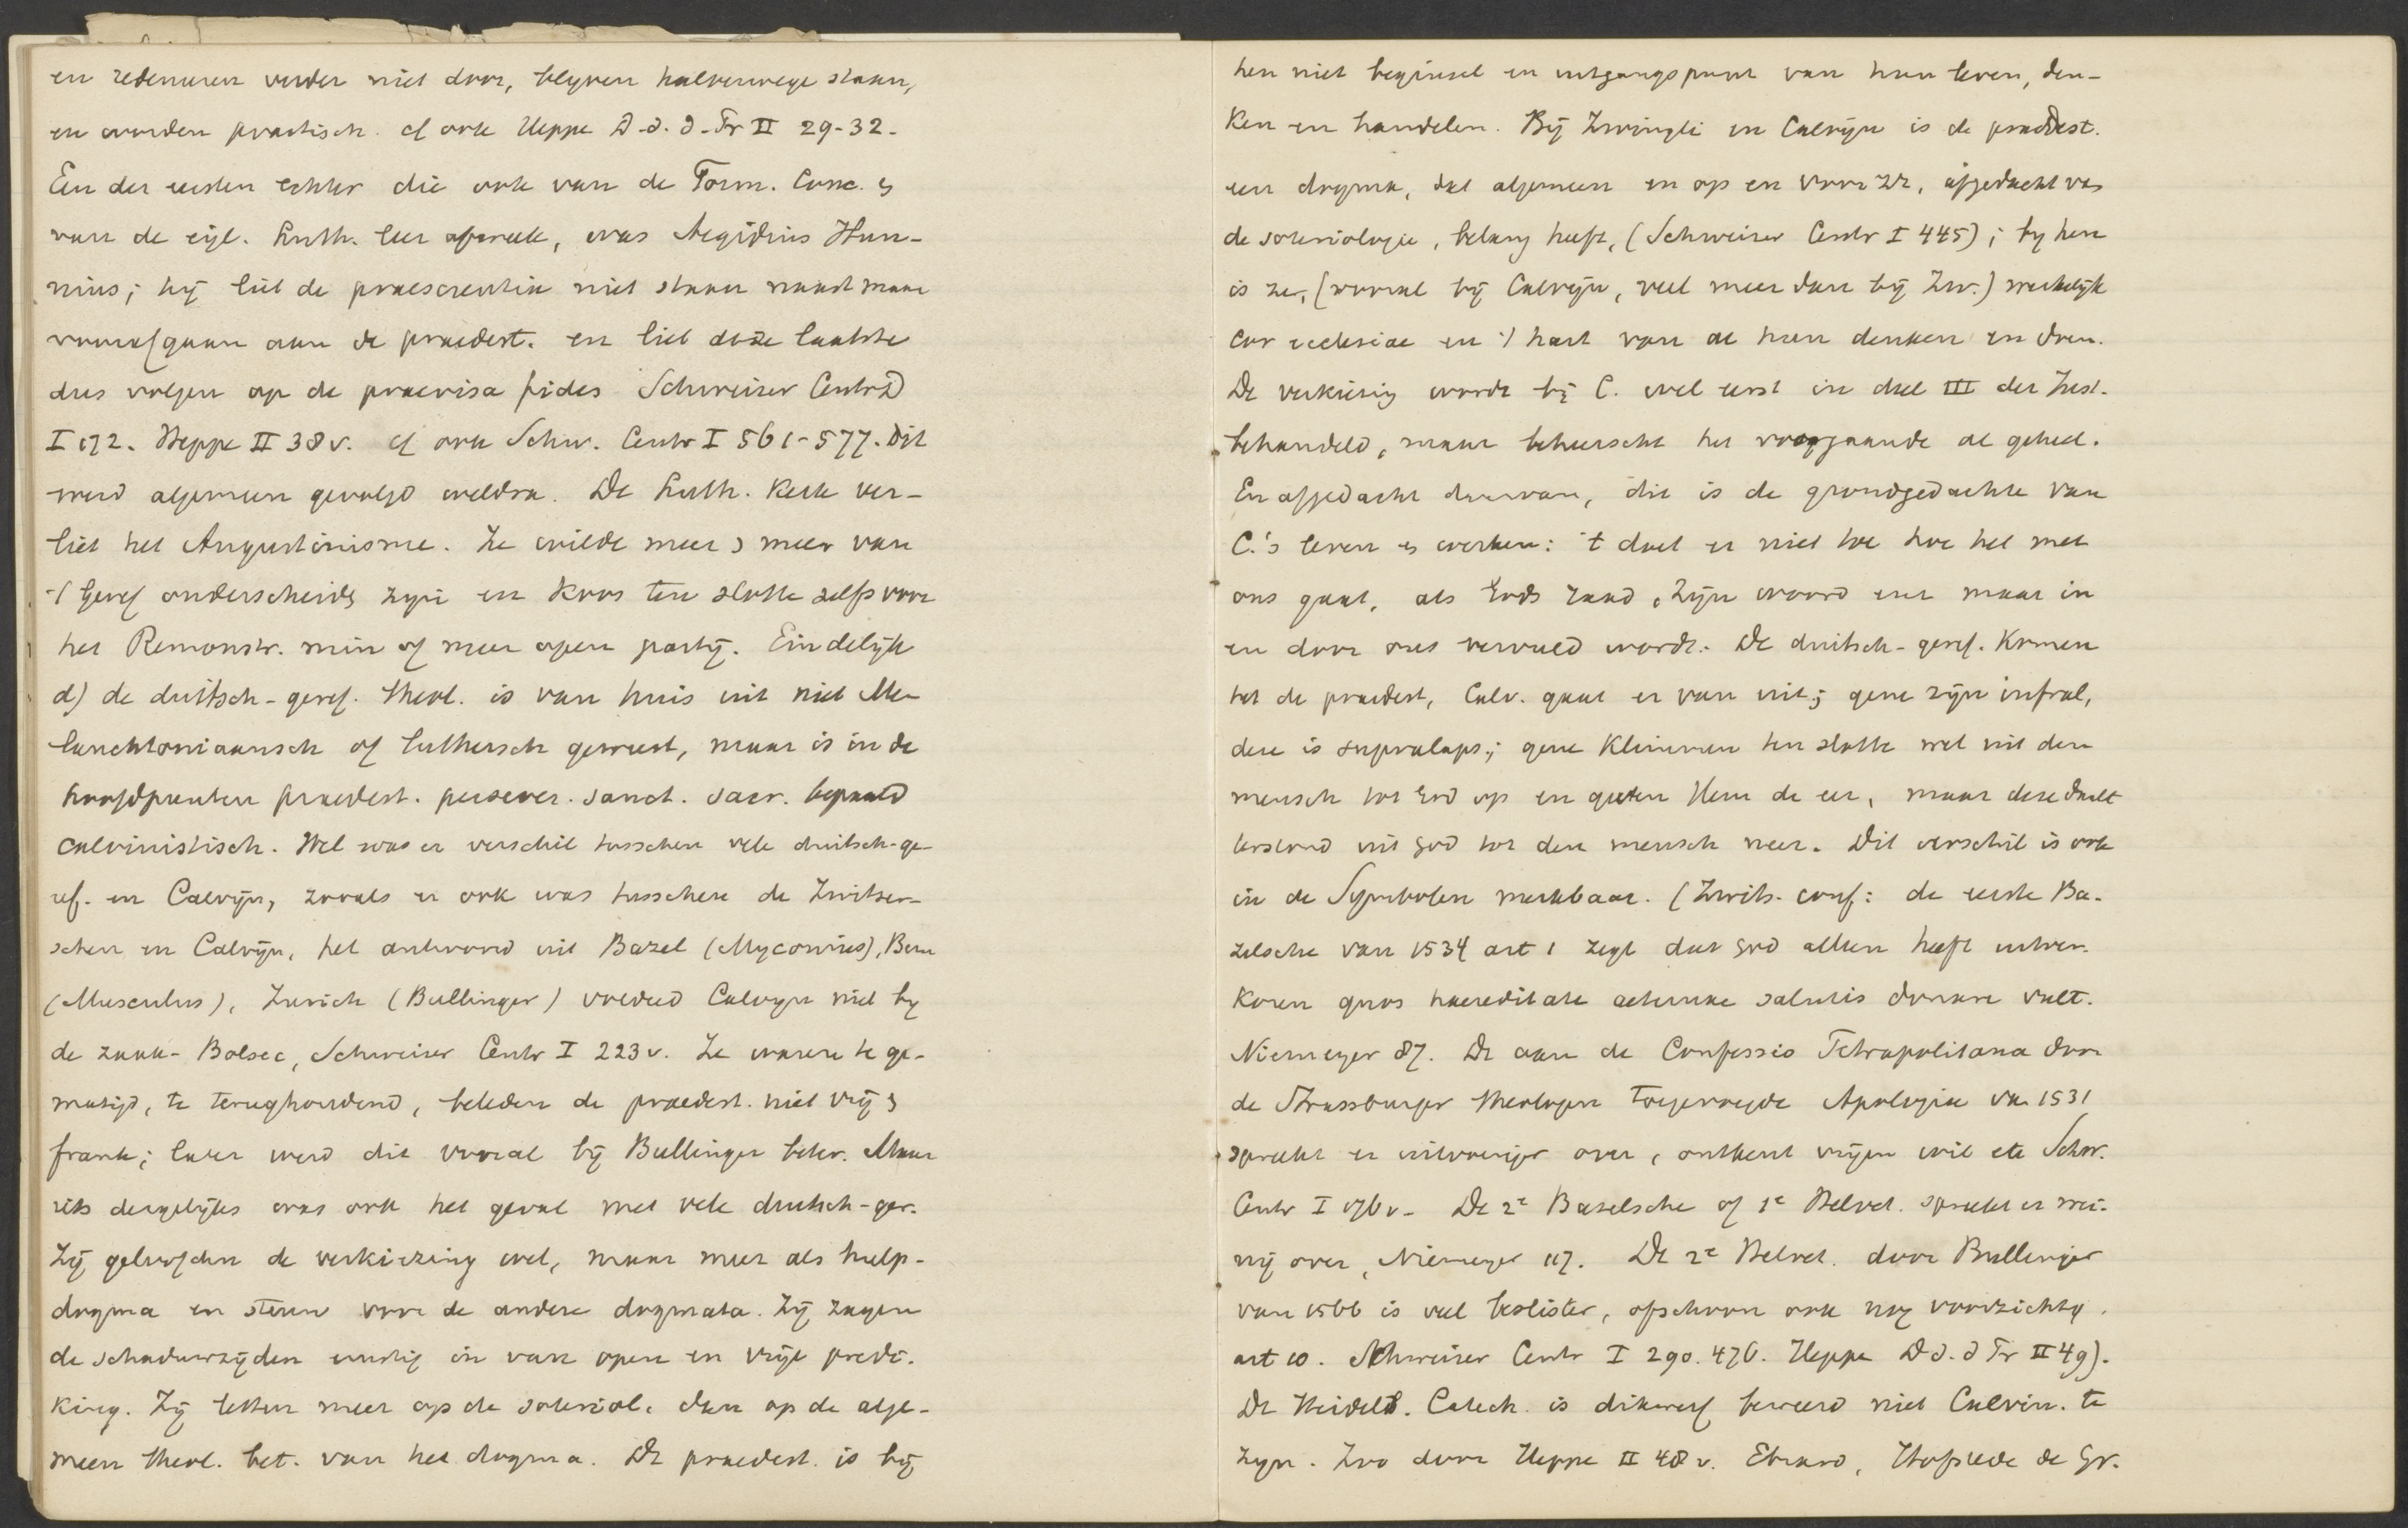 en redeneren verder niet door, blyven halverwege staan,
en worden practisch. cf ook Heppe D. d. d. Pr II 29-32.
Een der eersten echter die ook van de Form. Conc. &
van de eigl. Luth. leer afweek, was Aegidius Hun-
nius; hij liet de praescientia niet staan naast maar
voorafgaan aan de praedest. en liet deze laatste
dus volgen op de praevisa fides Schweizer Centrd
I 572. Heppe II 38 v. cf ook Schw. Centr I 561-577. Dit
werd algemeen gevolgd weldra. De Luth. Kerk ver-
liet het Augustinisme. Ze wilde meer & meer van
't Geref onderscheidn zijn en koos ten slotte zelfs voor
het Remonstr. min of meer open partij. Eindelijk
d) de duitsch-geref. theol. is van huis uit niet Me-
lanchtoniaansch of luthersch geweest, maar is in de
hoofdpunten praedest. persever. sanct. sacr. bepaald
calvinistisch. Wel was er verschil tusschen vele duitsch-ge-
ref. en Calvijn, zooals er ook was tusschen de Zwitser-
schen en Calvijn, het antwoord uit Bazel (Myconius), Bern
(Musculus), Zurich (Bullinger) voldeed Calvyn niet by
de zaak-Bolsec, Schweizer Centr I 223 v. Ze waren te ge-
matigd, te terughoudend, beleden de praedest. niet vrij &
frank; later werd dit vooral bij Bullinger beter. Maar
iets dergelijks was ook het geval met vele duitsch-ger.
Zij geloofden de verkiezing wel, maar meer als hulp-
dogma en steun voor de andere dogmata. Zij zagen
de schaduwzijden ernstig in van open en vrije predi-
king. Zij letten meer op de soteriol. dan op de alge-
meen theol. bet. van het dogma. De praedest. is bij
hen niet beginsel en uitgangspunt van hun leven, den-
ken en handelen. Bij Zwingli en Calvijn is de praedest.
een dogma, dat algemeen en op en voor zr, afgedacht van
de soteriologie, belang heeft, (Schweizer Centr I 445); by hen
is ze, (vooral bij Calvijn, veel meer dan bij Zw.) werkelijk
cor ecclesiae en 't hart van al hun denken en doen.
De verkiezing wordt bij C. wel eerst in deel III der Inst.
behandeld, maar beheerscht het voorgaande al geheel.
En afgedacht daarvan, dit is de grondgedachte van
C.'s leven & werken: 't doet er niet toe hoe het met
ons gaat, als Gods raad, Zijn woord enz maar in
en door ons vervuld wordt. De duitsch-geref. Komen
tot de praedest, Calv. gaat er van uit; gene zijn infral,
deze is supralaps.; gene klimmen ten slotte wel uit den
mensch tot God op en geven Hem de eer, maar deze daalt
terstond uit God tot den mensch neer. Dit verschil is ook
in de Symbolen merkbaar. (Zwits. conf: de eerste Ba-
zelsche van 1534 art 1 zegt dat God allen heeft uitver-
koren quos haereditate aeternae salutis donare vult.
Niemeyer 87. De aan de Confessio Tetrapolitana door
de Strassburger theologen toegevoegde Apologie van 1531
spreekt er uitvoeriger over, ontkent vrijen wil etc Schw.
Centr I 376 v. De 2e Bazelsche of 1e Helvet. spreekt er wei-
nig over, Niemeyer 117. De 2e Helvet. door Bullinger
van 1566 is veel beslister, ofschoon ook nog voorzichtig.
art 10. Schweizer Centr I 290. 476. Heppe D d. d Pr II 49).
De Heidelb. Catech. is dikwerf beweerd niet Calvin. te
zijn. Zoo door Heppe II 48 v. Ebrard, Hofstede de Gr.